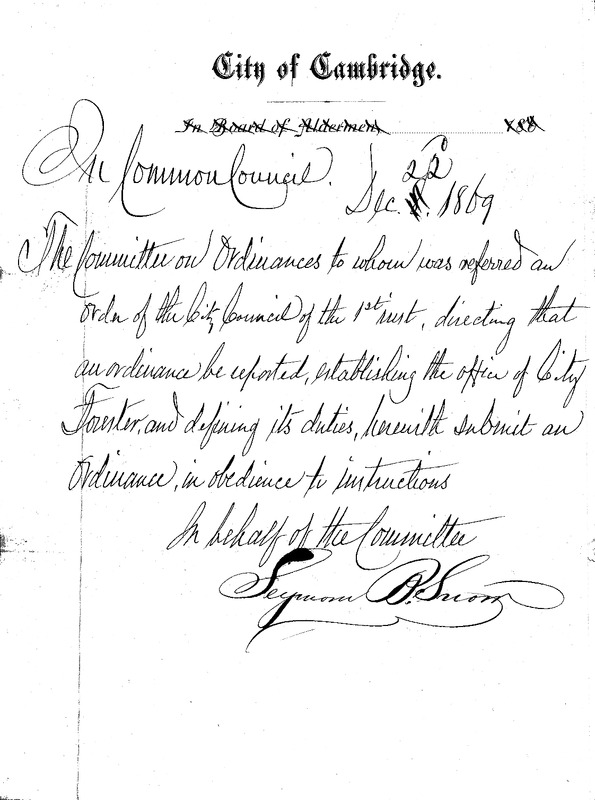 City of Cambridge.
In Board of Aldermen, 188
In Common Council. Dec. 22d 1869
The Committee on Ordinances to whom was referred an
order of the City Council of the 1st inst, directing that
an ordinance be reported, establishing the office of City
Forester, and defining its duties, herewith submit an
Ordinance, in obedience to instructions
In behalf of the Committee
Seymour B. Snow